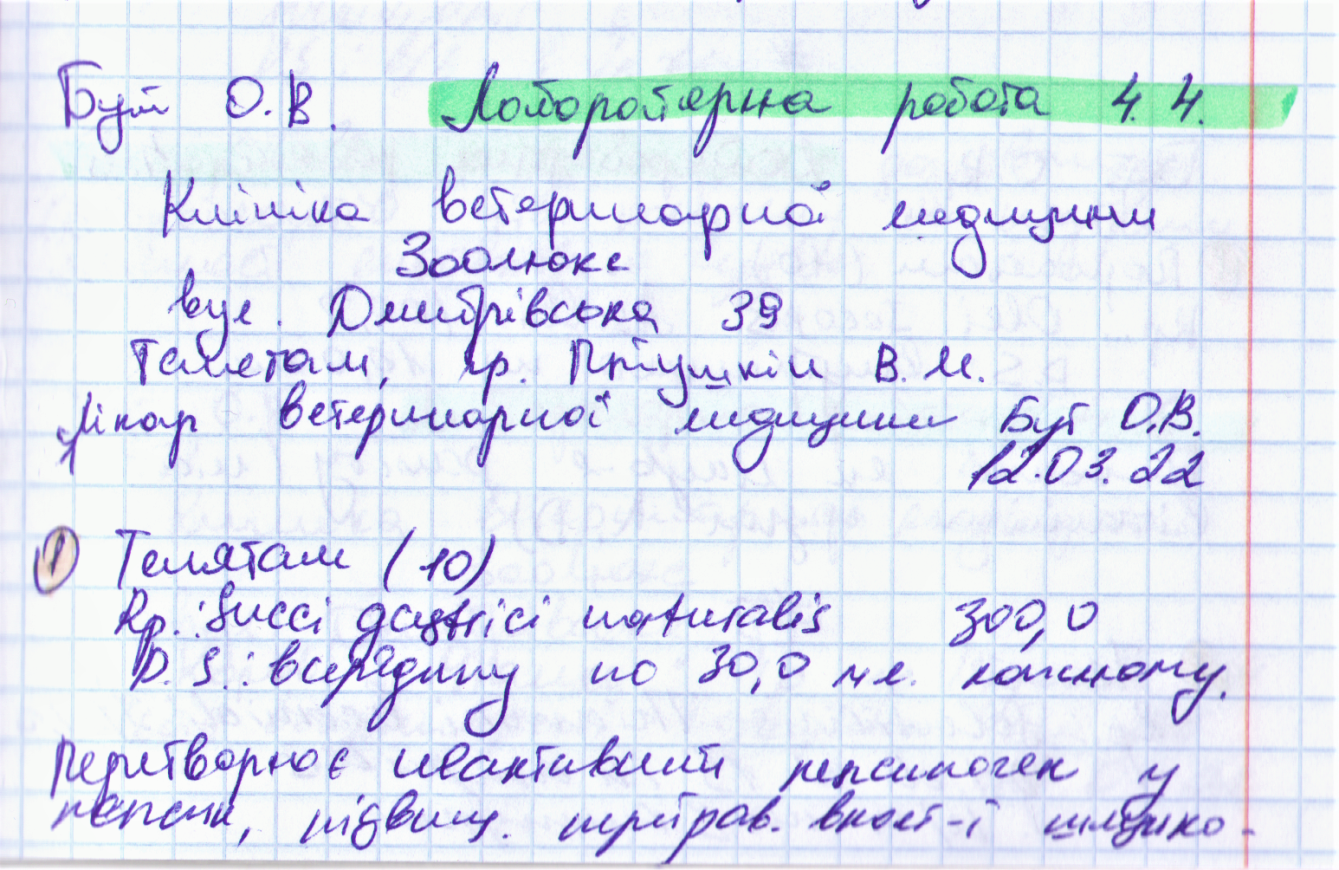 Бут О.В. Лабораторна робота 4.4.
Клініка ветеринарної медицини
Зоолюкс
вул. Дмитрівська 39
Телятам, гр. Птушкін В.М.
Лікар ветеринарної медицини Бут О.В.
12.03.22
1 Телятам (10)
Rp.: Succi gastrici naturalis 300,0
D.S.: всередину по 30,0 мл. кожному.
Перетворює неактивний пепсиноген у
пепсин, підвищ. перетрав. власт-і шлунко-